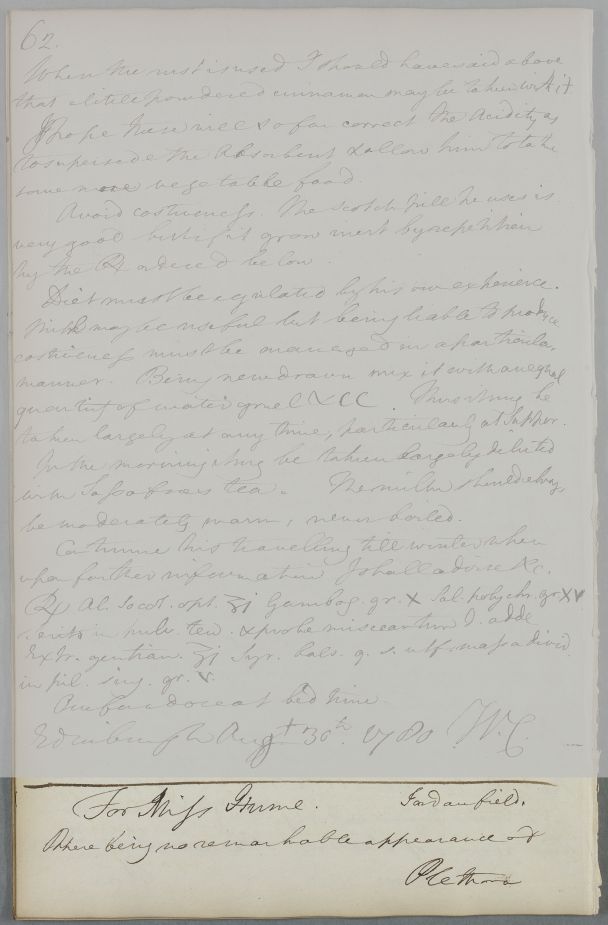 62.
When the rust is used I should have said above
that a little powdered cinnamon may be taken with it
I hope these will so far correct the Acidity as
to supersede the Absorbent & allow him to take
some more vegetable food.
Avoid costiveness. The scotch pill he uses is
very good but if it grow inert by repetition
try the ℞ adered below.
Diet must be regulated by his own experience.
Milk may be useful but being liable to produce
costiveness must be managed in a particular
manner. Being new drawn mix it with an equal
quantity of water gruel &CC. Thus it may be
taken largely at any time, particularly at Supper.
In the morning it may be taken largely diluted
with Sassafras tea. The milk should always
be moderately warm, never boiled.
Continue his travelling till winter when
upon further information I shall advise &c.
℞ Al. Socot. opt. ʒj Gambog. gr. X Sal. polychr. gr XV
terito in pulv. ten. & probe misceantur D. adde
Extr. gentian. ʒj Syr. bals. q. s. ut f. massa divid.
in pil. sing. gr. V.
One for a dose at bed time.
Edinburgh Augt 30th. 1780 W.C.
For Miss Hume. Jardanfield.
There being no remarkable appearance of
Plethora